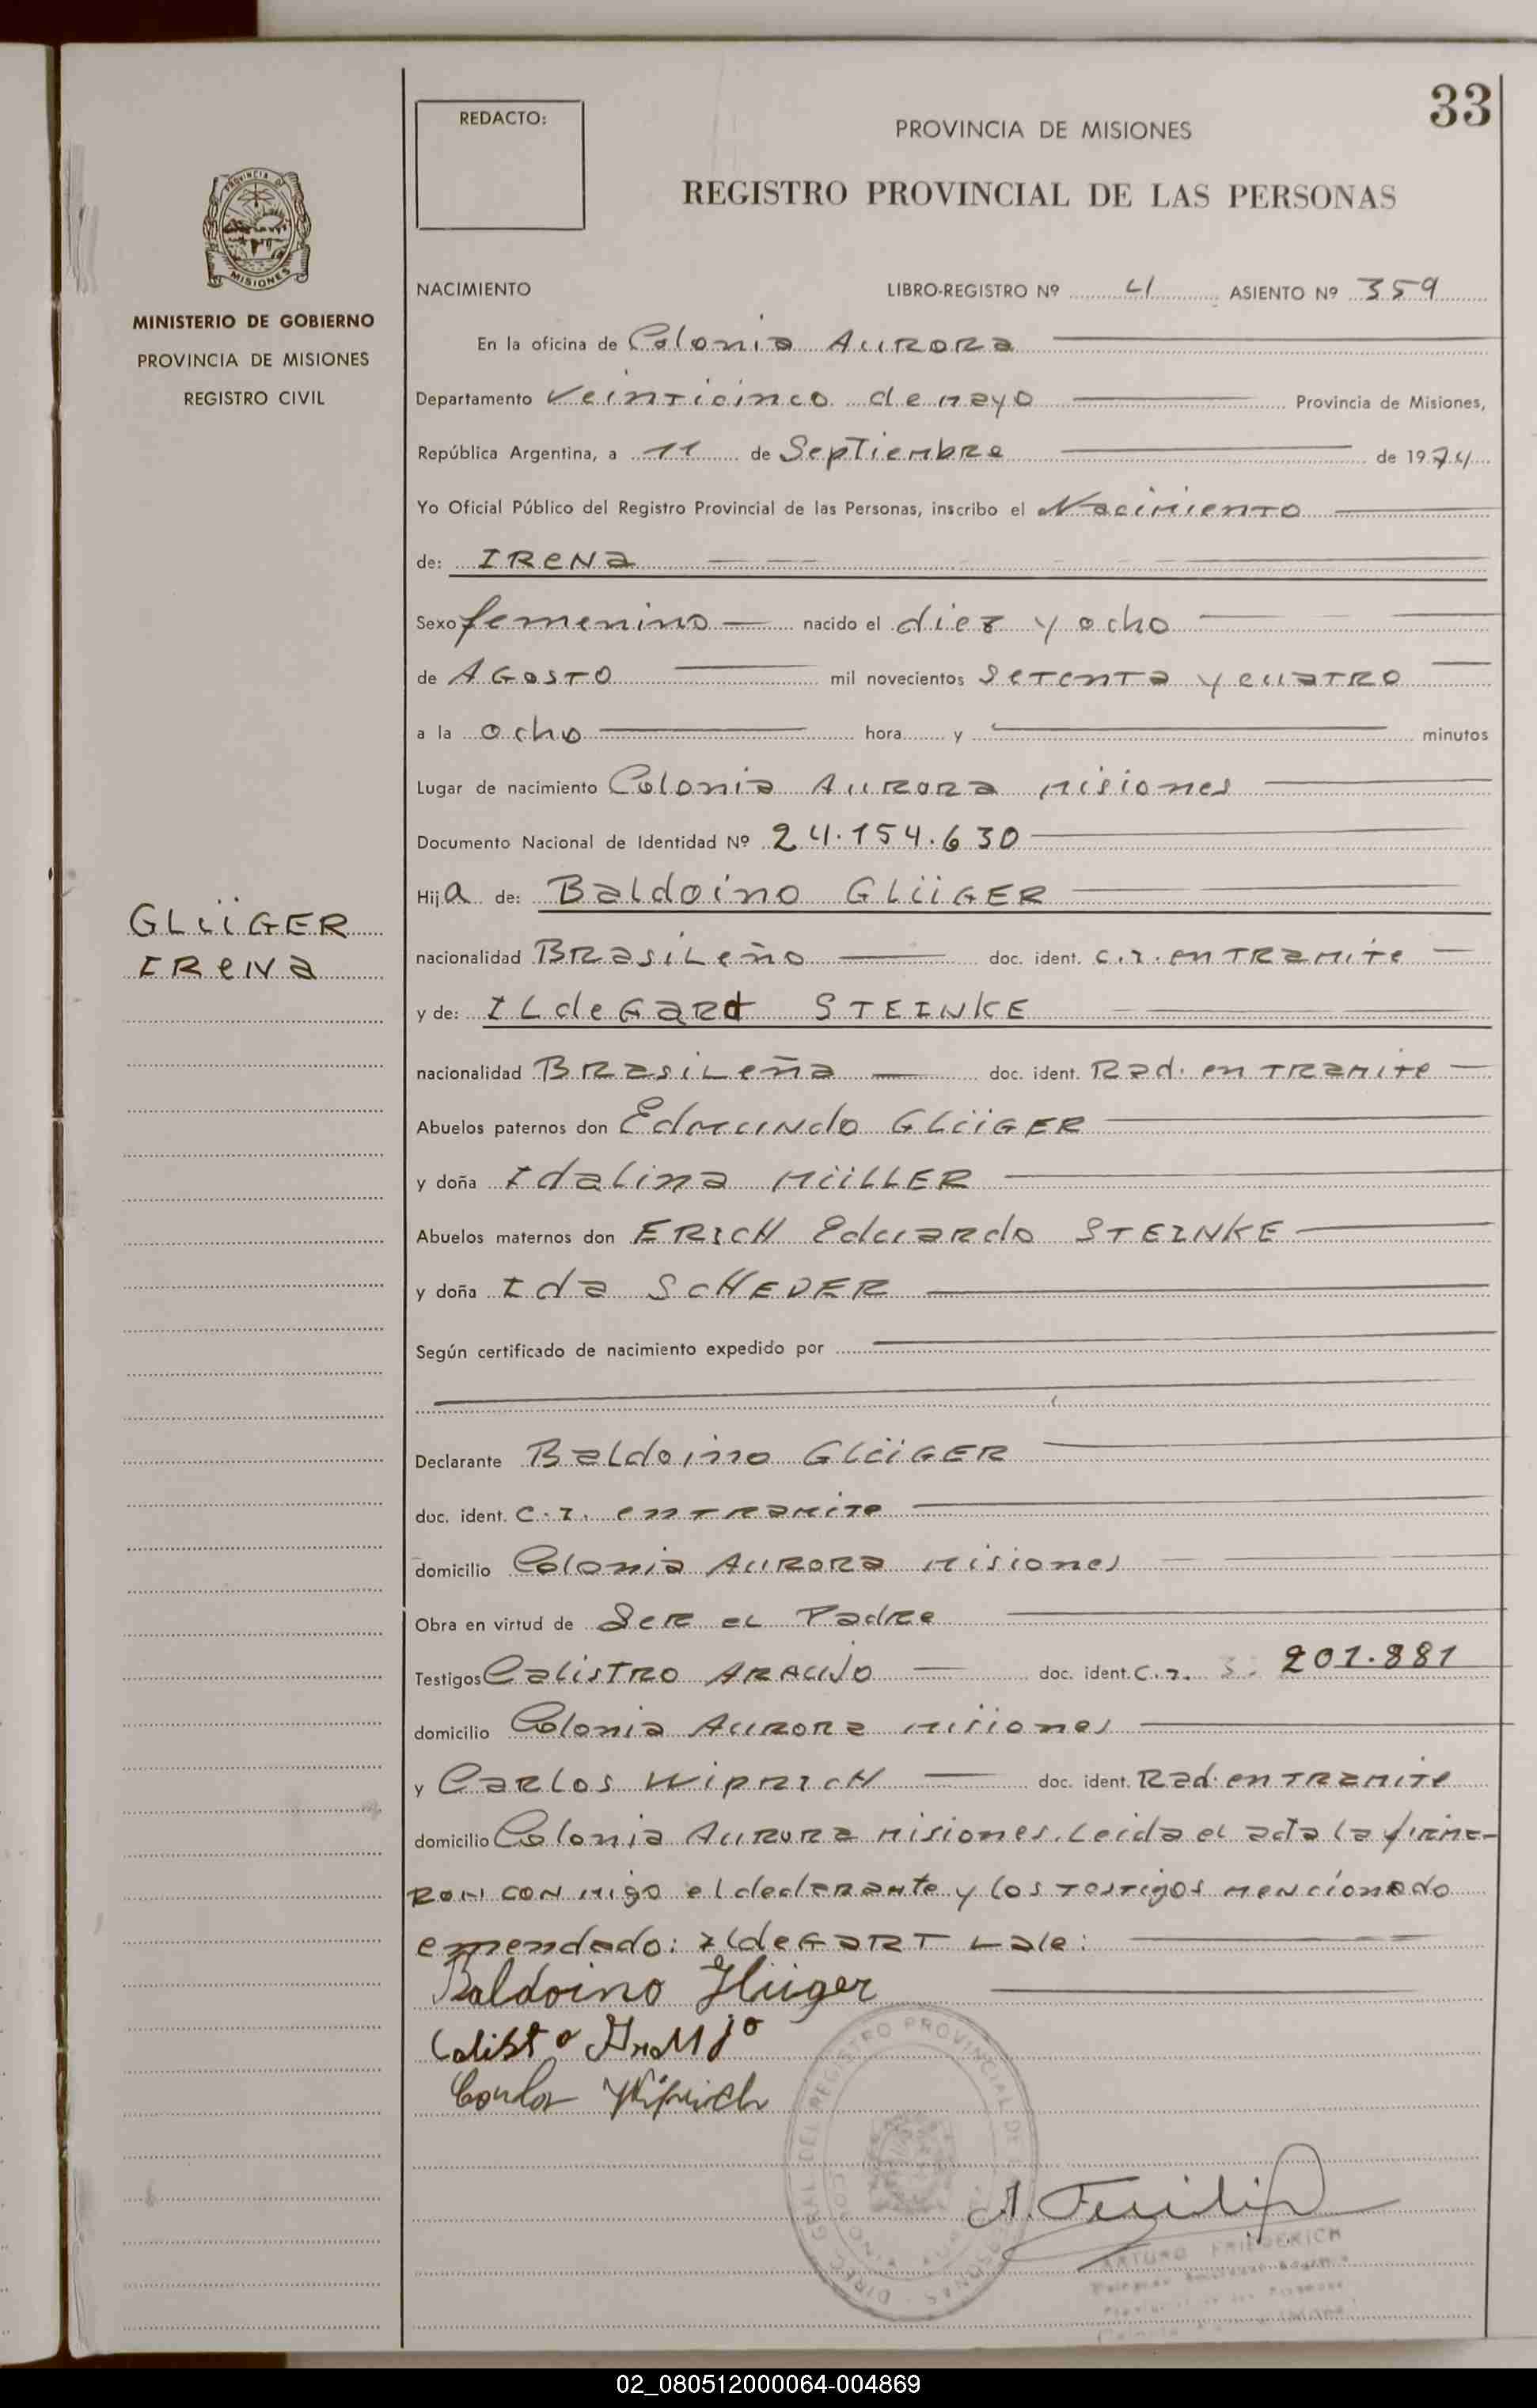 33
REDACTO:
PROVINCIA DE MISIONES
REGISTRO PROVINCIAL DE LAS PERSONAS
PROVINCIA DE
MISIONES
MINISTERIO DE GOBIERNO
PROVINCIA DE MISIONES
REGISTRO CIVIL
GLüGER
IRENa
NACIMIENTO LIBRO-REGISTRO Nº 4 ASIENTO Nº 359
En la oficina de Colonia AuRoRa
Departamento Veinticinco de mayo Provincia de Misiones,
República Argentina, a 11 de Septiembre de 1974
Yo Oficial Público del Registro Provincial de las Personas, inscribo el Nacimiento
de: IReNa
Sexo femenino nacido el diez y ocho
de AGosTO mil novecientos Setenta y cuatro
a la ocho hora y minutos
Lugar de nacimiento Colonia AuRora misiones
Documento Nacional de Identidad Nº 24.154.630
Hija de: Baldoino GLüGER
nacionalidad BRasiLeño doc. ident. c.i. en TRamite
y de: ILdeGaRt STEINKE
nacionalidad BRasiLeña doc. ident. Rad. en TRamite
Abuelos paternos don Edmundo GLüGER
y doña Idalina MüLLER
Abuelos maternos don ERICH Eduardo STEINKE
y doña Ida ScHEDER
Según certificado de nacimiento expedido por
Declarante Baldoino GLüGER
doc. ident. C.I. en TRamite
domicilio Colonia AuRoRa misiones
Obra en virtud de Ser el Padre
Testigos Calistro ARAUJO doc. ident. C.I. 201.881
domicilio Colonia AuRora misiones
y CaRLos WipRicH doc. ident. Rad. en TRamite
domicilio Colonia AuRora misiones. Leida el acta la firma-
Ron con migo el declarante y los testigos mencionado
emendado: ILdeGaRT Vale:
Baldoino Glüger
Calisto Araujo
Carlos Wiprich
DIREC. GRAL. DEL REGISTRO PROVINCIAL DE
ARTURO FRIEDERICH
02_080512000064-004869